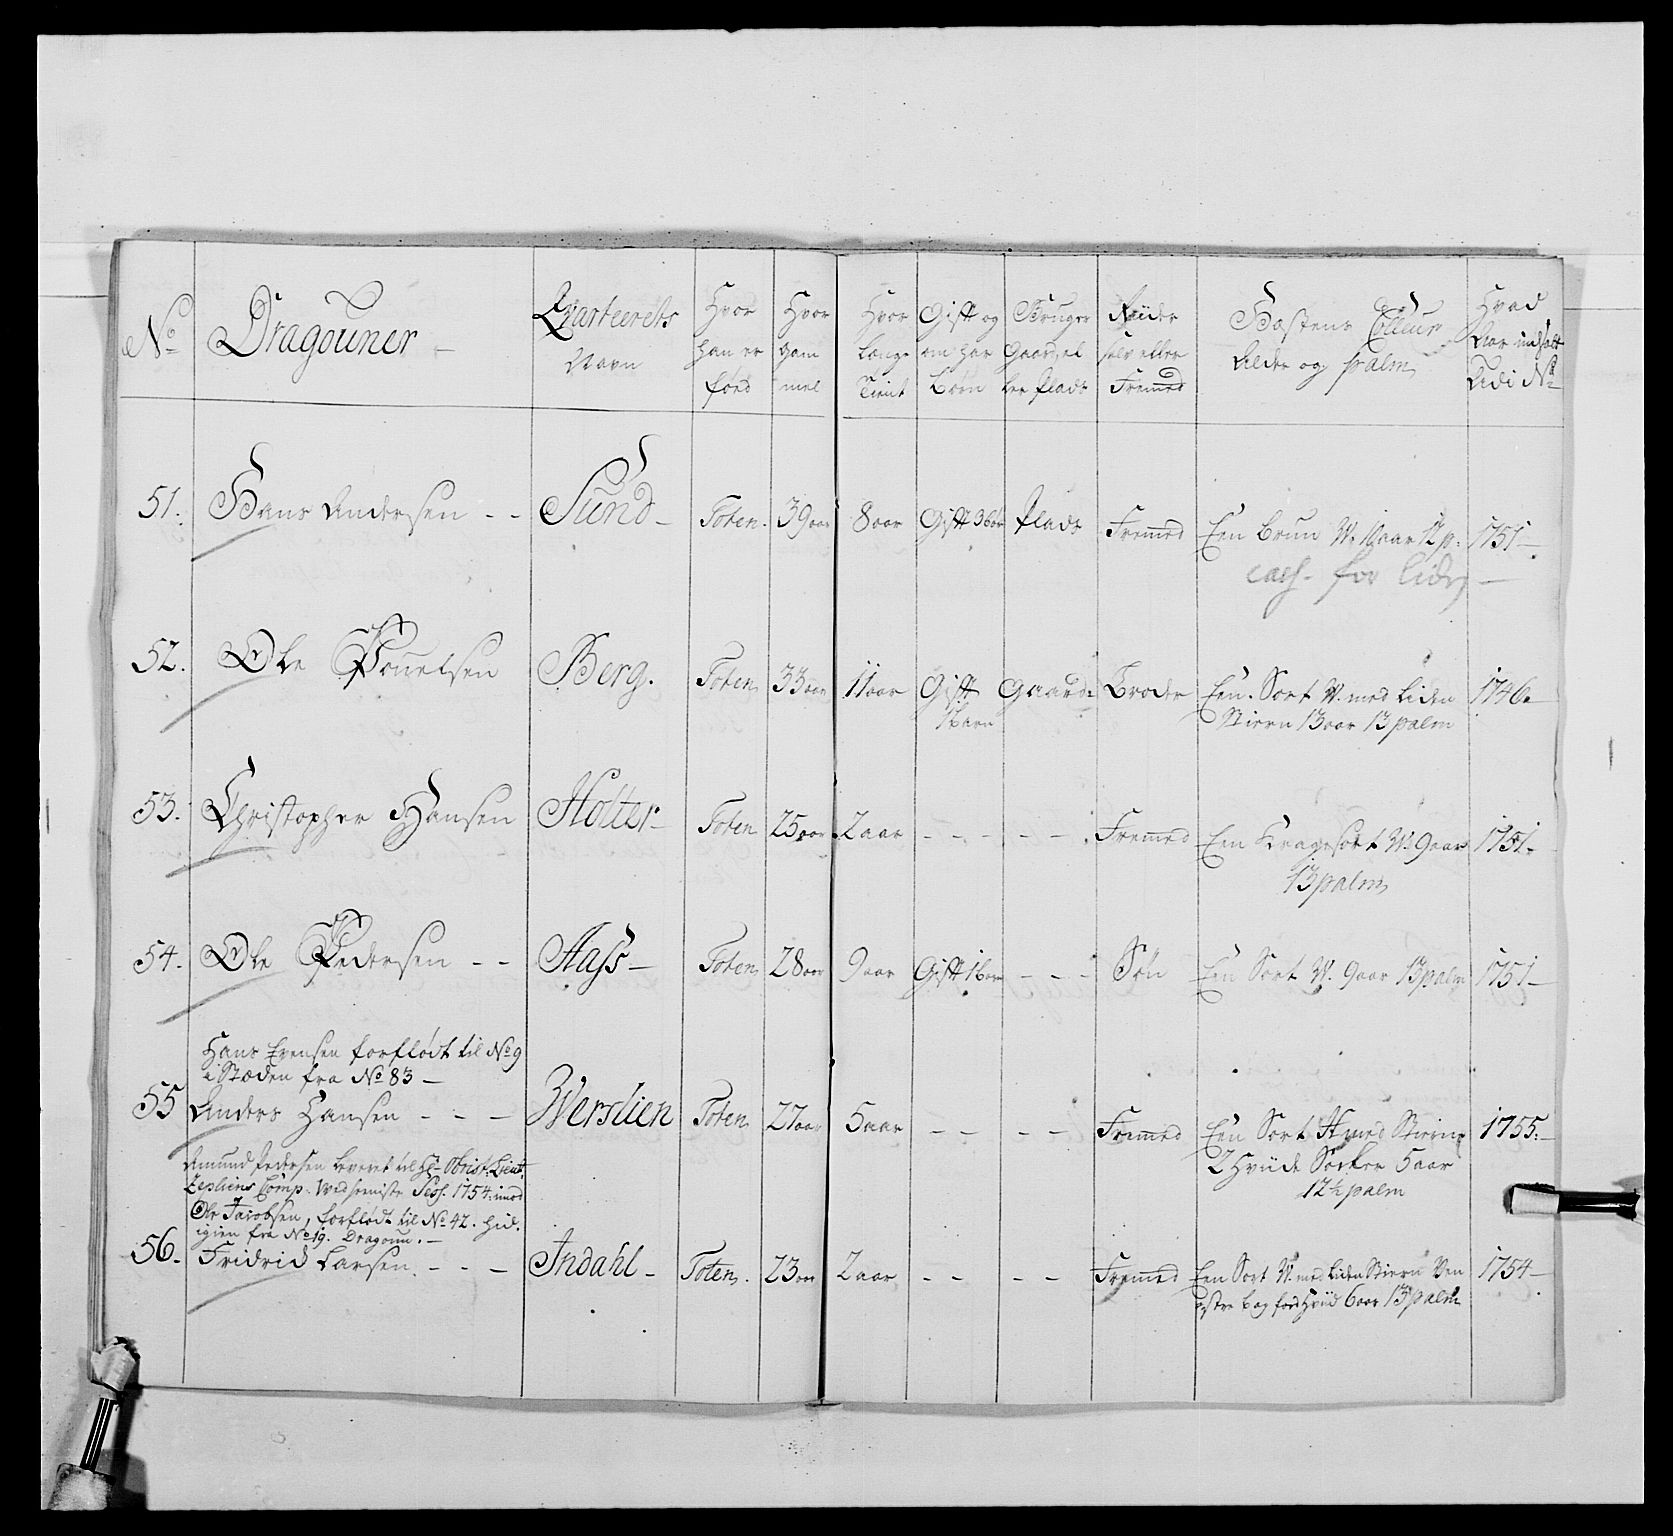 No
Dragouner
Qvarteerets Navn
Hvor han er fød
Hvor gam mel
Hvor Længe Tient
Gift og om har Børn
Bruger Gaard el ler Plads
Riider selv eller Fremed
Hæstens Couleur Alder og palm
Hvad Aar indsatt udi No
51. Hans Andersen - - Sund - Toten. 39 aar 8 aar Gift 3 bør Plads Fremed Een brun V. 10 aar 12 p. 1751 -
cass. for
52. Ole Pouelsen Berg. Toten 33 aar 11 aar Gift Gaard. Broder Een Sort V. med liden 1746.
1 barn Stiern 13 aar 13 palm
53. Christopher Hansen Holter - Toten 25 aar 2 aar - - - - - Fremed Een Kragesort V. 9 aar 1751.
13 palm
54. Ole Pedersen - - Aass - Toten 28 aar 9 aar Gift 1 barn - - - Søn Een Sort V. 9 aar 13 palm 1751 -
Hans Evensen forflødt til No 9
i Stæden fra No 83 -
55 Anders Hansen - - - Werslien Toten 27 aar 5 aar - - - - Fremed Een Sort H med Stiern 1755. -
2 Hviide Socker 5 aar
12½ palm
Amund Pedersen leveret til Hr. Obrist Lieut.
Zepliens Comp. Ved seeniste Sess. 1754. imod
Ole Jacobsen, forflødt til No 42. hid.
igien fra No 19. Dragoun. -
56. Fridrid Larsen. - - - Indahl - Toten. 23 aar 2 aar - - - - Fremed Een Sort V. med liden Stiern Ven 1754 -
stre bag fod Hviid 6 aar 13 palm